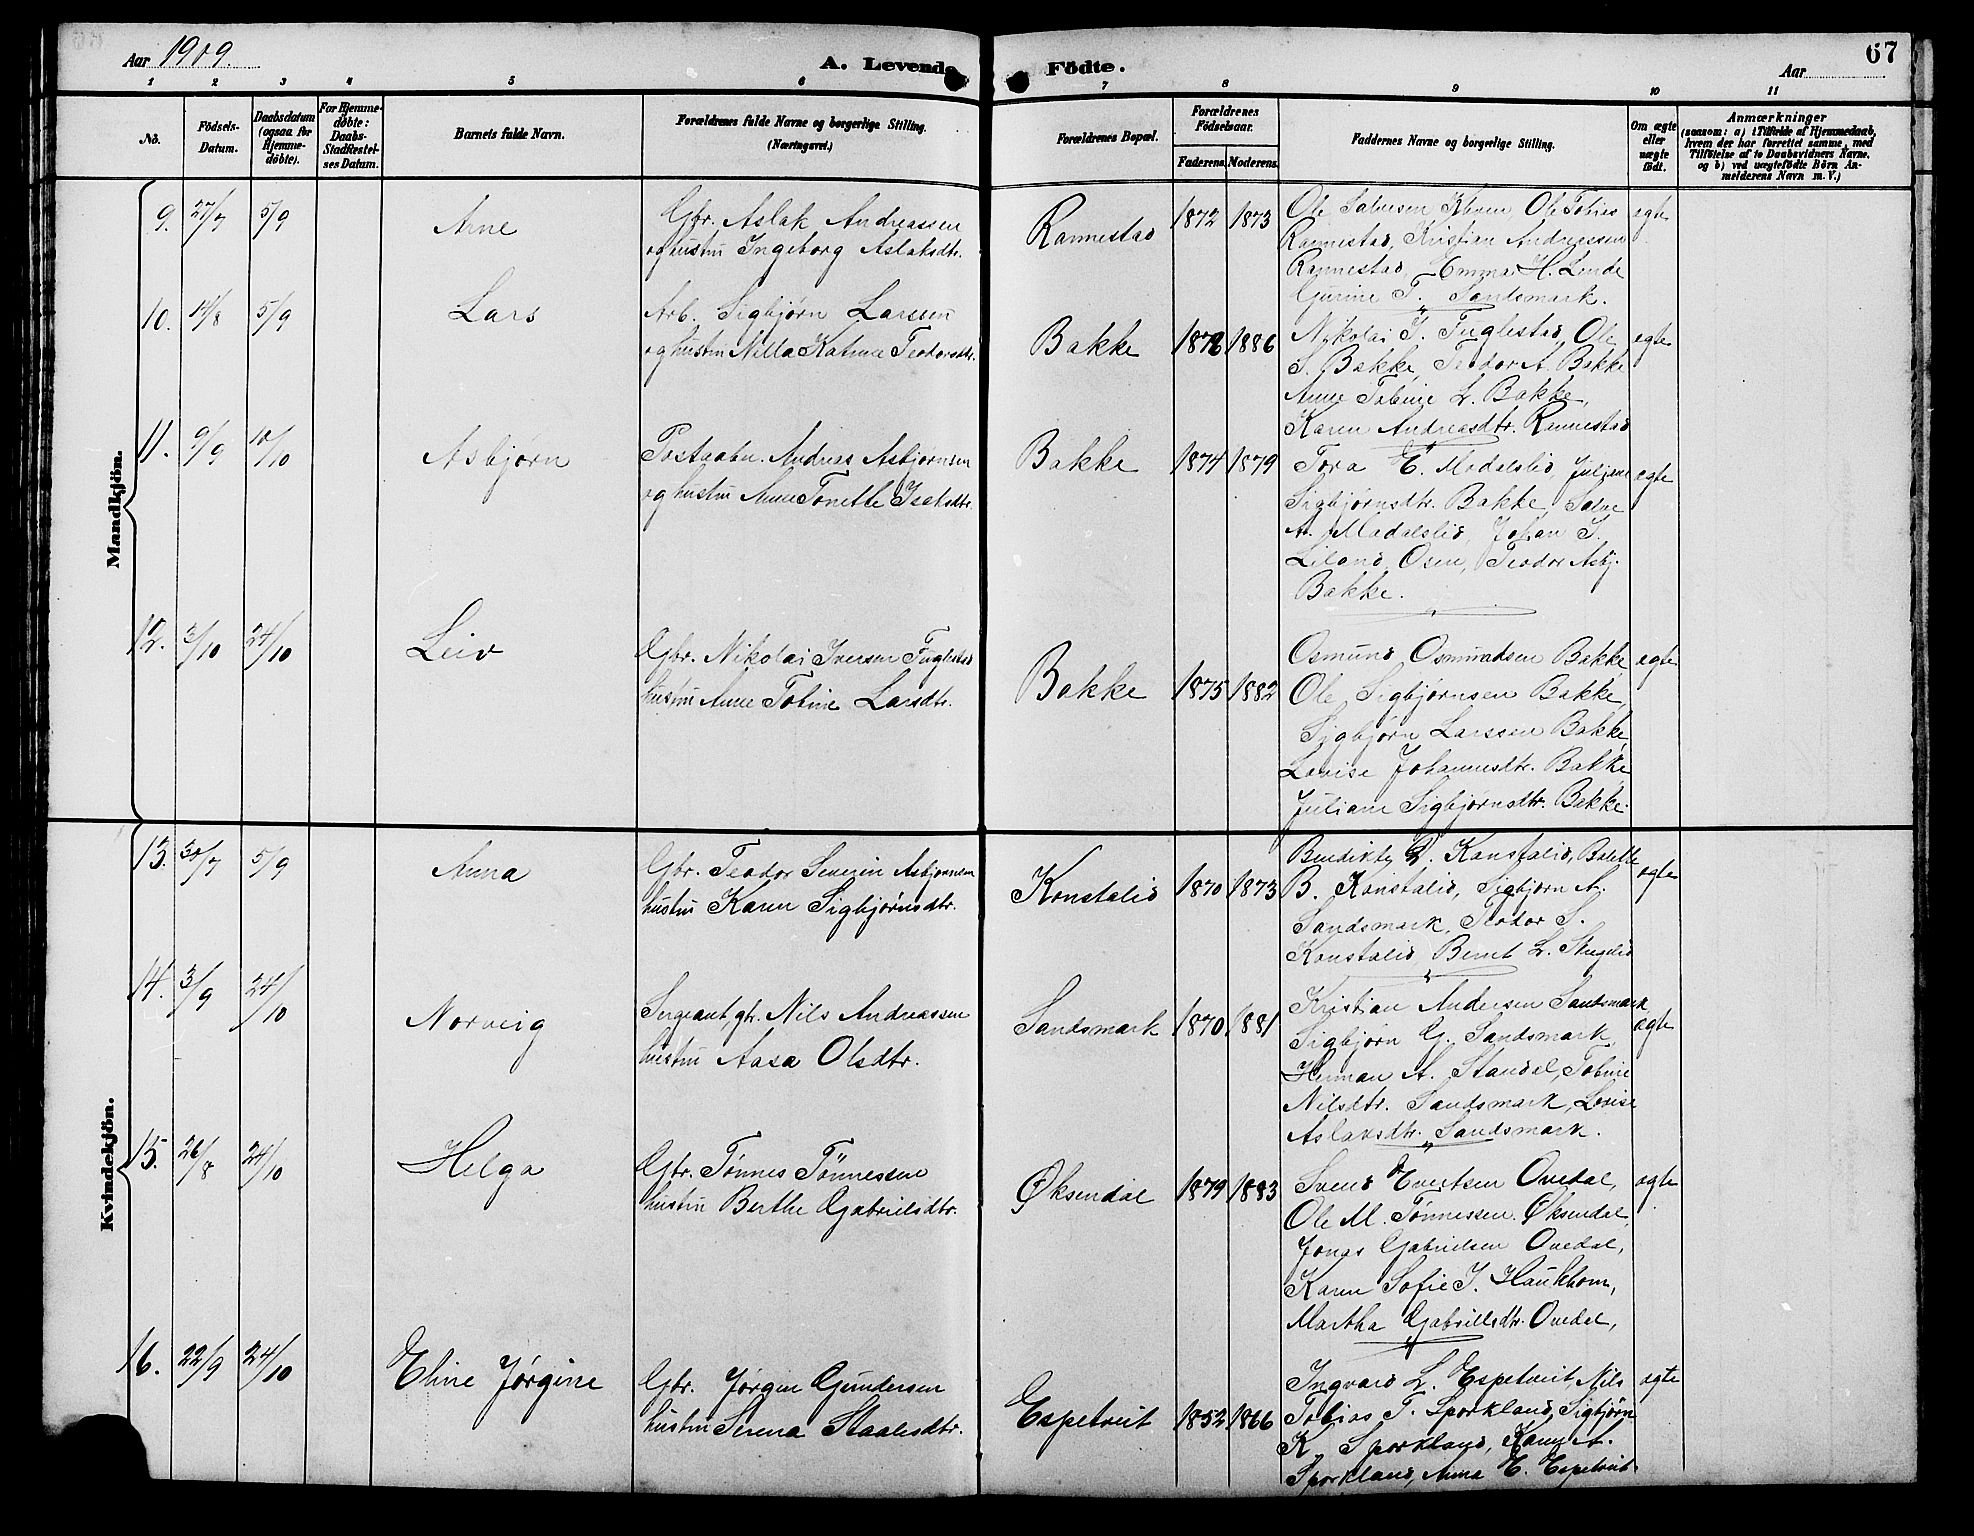 Aar 1909.
A. Levende Födte.
Aar
67
1 2 3 4 5 6 7 8 9 10 11
No.
Födsels-
Datum.
Daabsdatum
(ogsaa for
Hjemme-
döbte).
For Hjemme-
döbte:
Daabs-
Stadfæstel-
ses Datum.
Barnets fulde Navn.
Forældrenes fulde Navne og borgerlige Stilling.
(Næringsvei.)
Forældrenes Bopæl.
Forældrenes
Födselsaar.
Faderens. Moderens.
Faddernes Navne og borgerlige Stilling.
Om ægte
eller
uægte
födt.
Anmærkninger
(saasom: a) i Tilfælde af Hjemmedaab,
hvem der har forrettet samme, med
Tilföielse af to Daabsvidners Navne.
og b) ved uægtefödte Börn An-
melderens Navn m. V.)
Mandkjön.
9. 27/7 5/9
Arne
Gbr. Aslak Andreassen
og hustru Ingeborg Aslaksdtr.
Rannestad
1872 1873
Ole Salvesen Kleven Ole Tobias
Rannestad, Kristian Andreassen
Rannestad, Emma H. Lende
Gurine T. Sandsmark.
ægte
10. 14/8 5/9
Lars
Arb. Sigbjørn Larssen
og hustru Nilla Katrine Teodorsdtr.
Bakke
1886
Nikolai I. Fuglestad, Ole
S. Bakke, Teodor A. Bakke
Anne Tobine L. Bakke,
Karen Andreasdtr. Rannestad
ægte
11. 9/9 10/10
Asbjørn
Postaabn. Andreas Asbjørnsen
og hustru Anne Tonette Isaksdtr.
Bakke
1874 1879
Tora E. Modalslid, Juliane
Sigbjørnsdtr. Bakke, Salve
A. Modalslid, Johan I.
Liland, Osen, Teodor Asbj.
Bakke.
ægte
12. 3/10 24/10
Leiv
Gbr. Nikolai Iversen Fuglestad
hustru Anne Tobine Larsdtr.
Bakke
1875 1882
Osmund Osmundsen Bakke,
Ole Sigbjørnsen Bakke,
Sigbjørn Larssen Bakke,
Lovise Johannesdtr. Bakke
Juliane Sigbjørnsdtr. Bakke.
ægte
Kvindekjön.
13. 30/7 5/9
Anna
Gbr. Teodor Severin Asbjørnsen
hustru Karen Sigbjørnsdtr.
Konstalid
1870 1873
Benedikte Konstalid, Bolette
B. Konstalid, Sigbjørn A.
Sandsmark, Teodor S.
Konstalid, Bernt L.
ægte
14. 3/9 24/10
Norveig
Sergeant, gbr. Nils Andreassen
hustru Aasa Olsdtr.
Sandsmark
1870 1881
Kristian Andersen Sandsmark
Sigbjørn G. Sandsmark,
Herman A. Standal, Tobine
Nilsdtr. Sandsmark, Lovise
Aslaksdtr. Sandsmark.
ægte
15. 26/8 24/10
Helga
Gbr. Tønnes Tönnessen
hustru Berthe Gabrielsdtr.
Øksendal
1879 1883
Svend Evertsen Ovedal,
Ole M. Tønnessen Øksendal,
Jonas Gabrielsen Ovedal,
Karen Sofie I. Haukhom,
Martha Gabrielsdtr. Ovedal,
ægte
16. 22/9 24/10
Eline Jørgine
Gbr. Jørgen Gundersen
hustru Serena Staalesdtr.
Espetveit
1852 1866
Ingvard L. Espetveit, Nils
Tobias T. Sporkland, Sigbjørn
K. Sporkland, Karen A.
Sporkland, Anna E. Espetveit
ægte